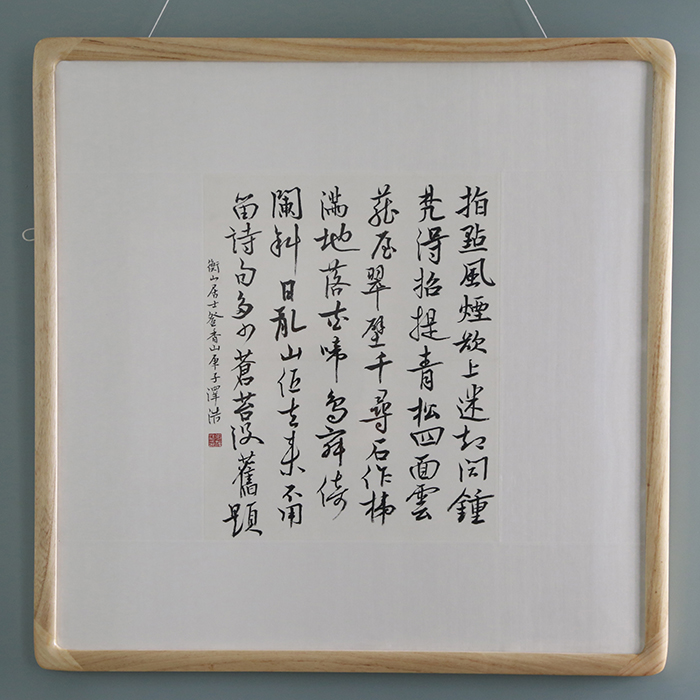 指點風煙欲上迷却闻鍾
梵得招提青松四面雲
藏屋翠壁千尋石作梯
滿地落花啼鳥寂倚
闌斜日亂山低去来不用
留詩句多少蒼苔没舊題
衡山居士登香山庚子澤浩